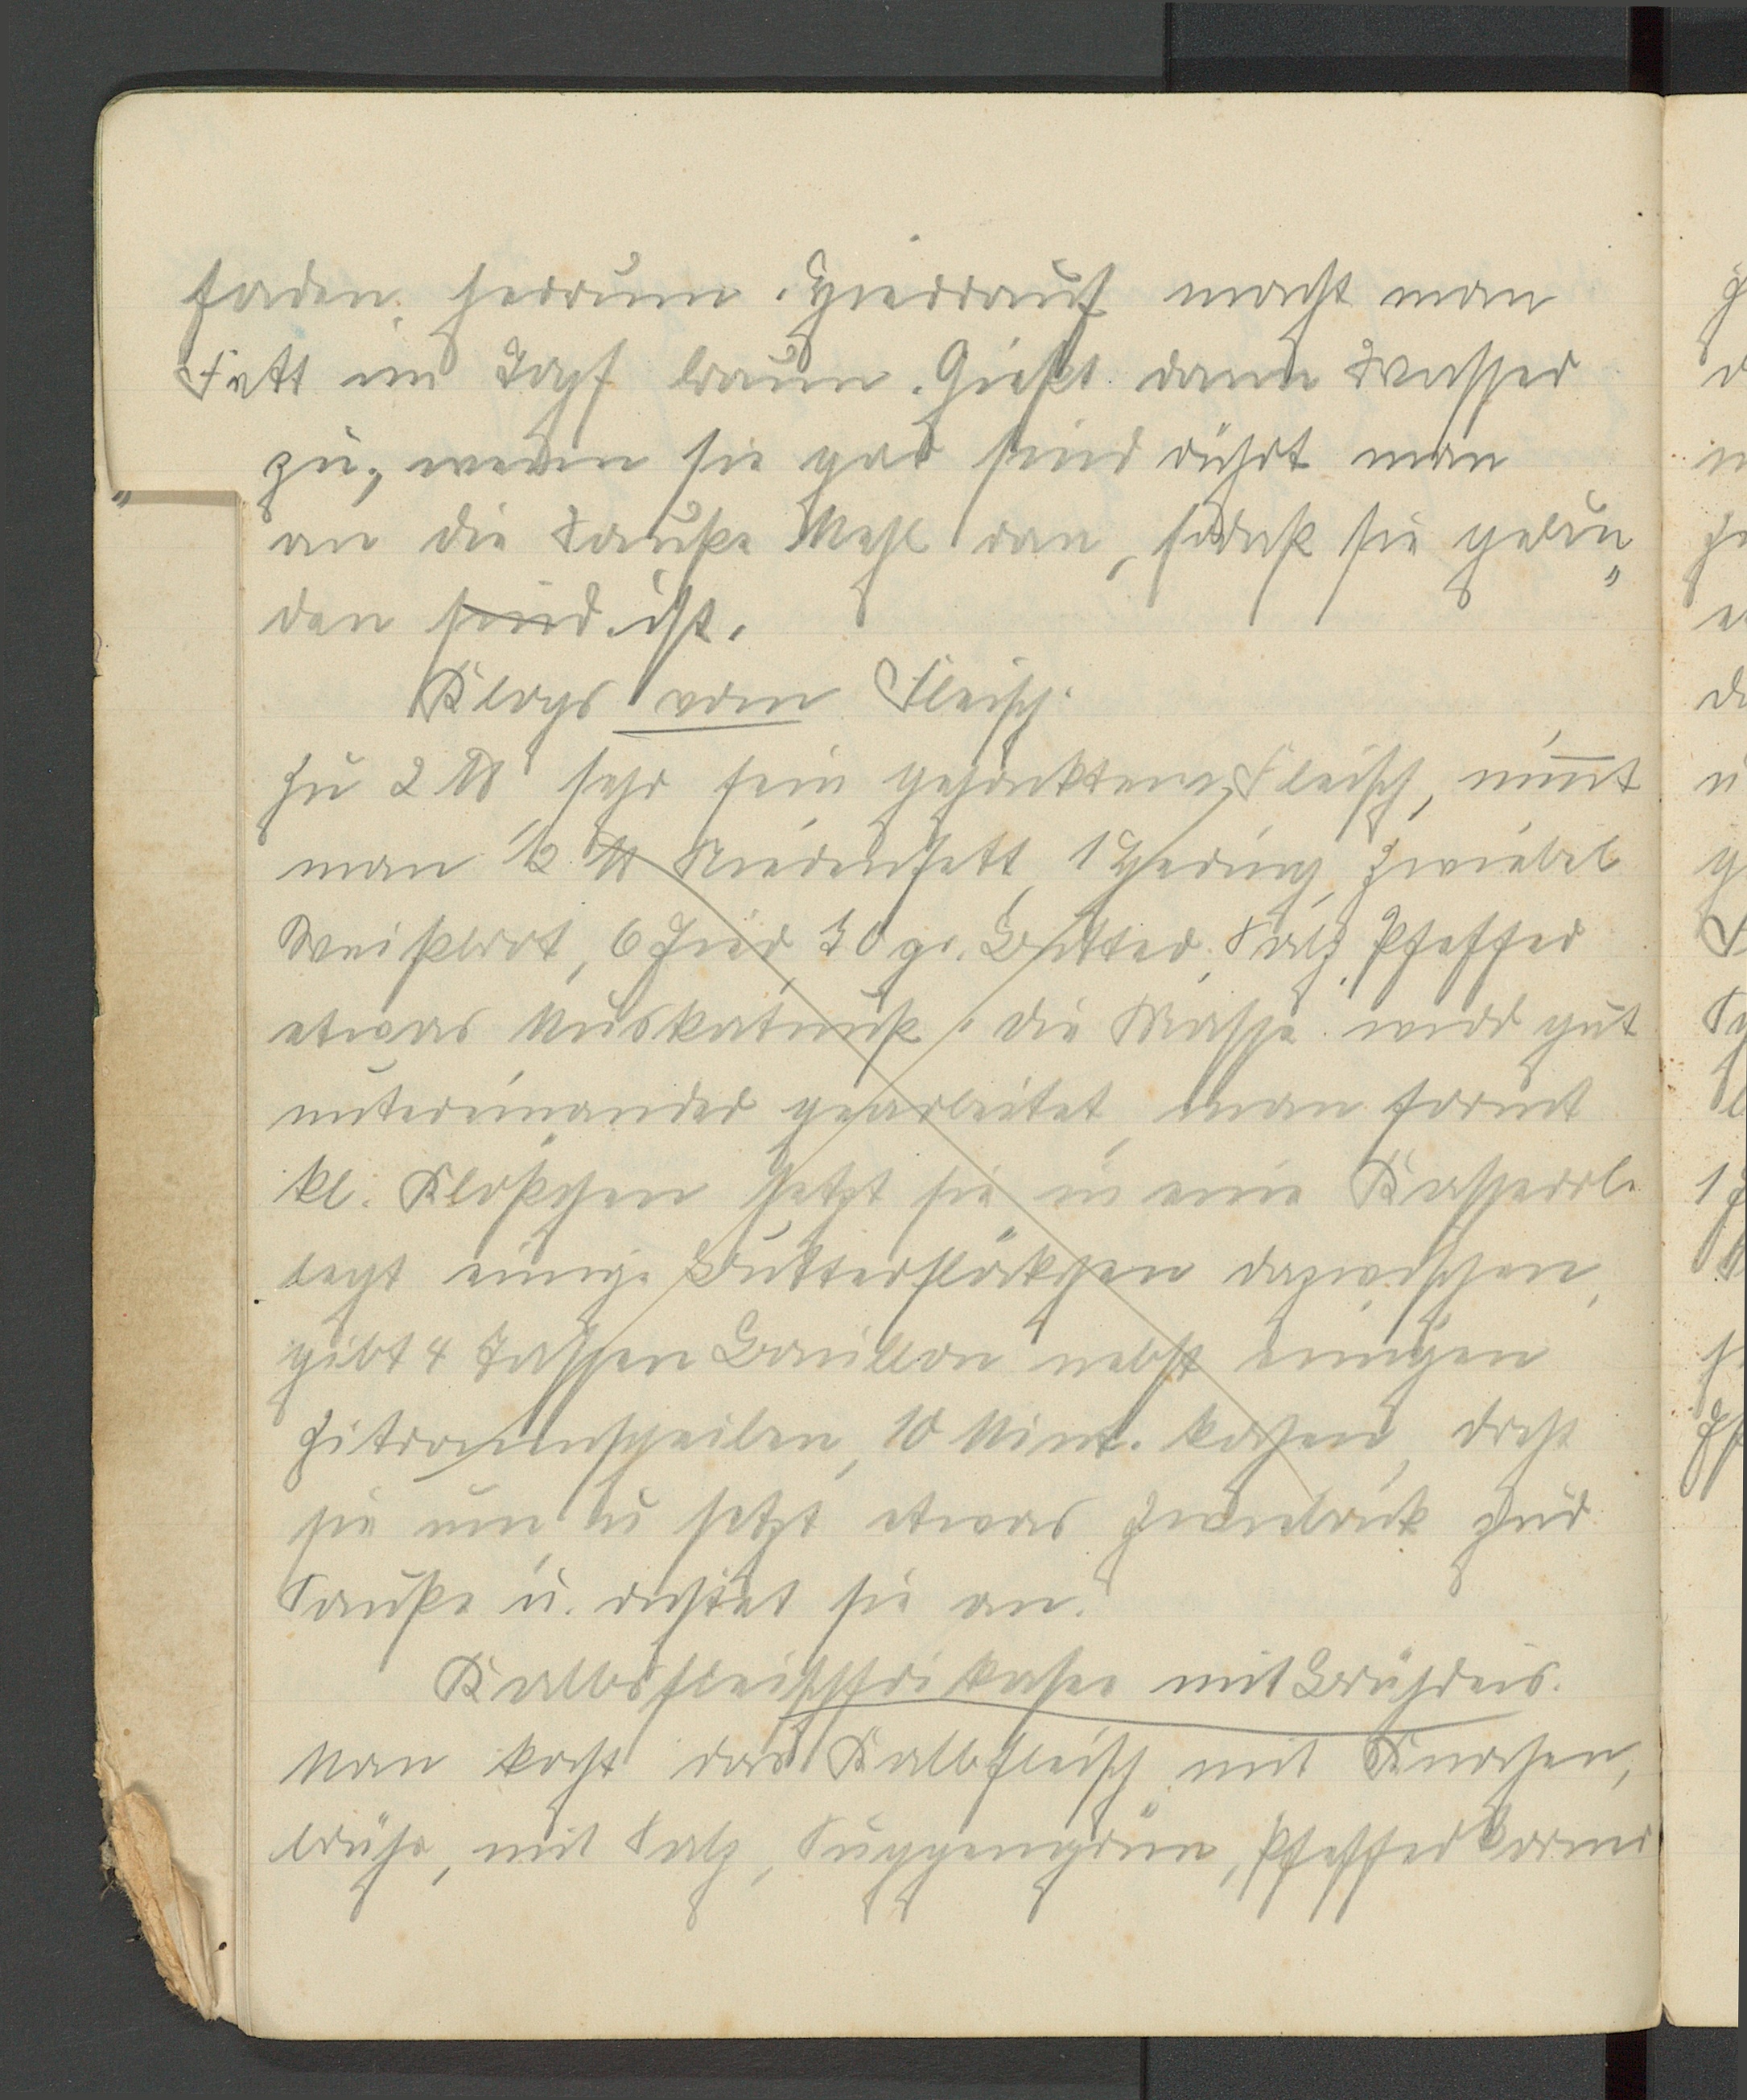 faden herrum. Hierrauf macht man
Fett im Topf braun. Gießt dann Wasser
zu, wenn sie gar sind rührt man
an die Sauße Mehl ran, sodaß sie gebun„
den sind ist.
Klops vom Fleisch.
Zu 2 ℔ sehr fein gehacktem Fleisch, nimmt
man ½ ℔ Nierenfett, 1 Hering, Zwiebel
Weißbrot, 6 Eier, 30 gr. Butter, Salz, Pfeffer
etwas Muskatnuß. die Masse wird gut
untereinander gearbeitet, man formt
kl. Klößchen setzt sie in eine Kasserole
legt einige Butterflöckchen dazwischen,
gibt 4 Tassen Bouillon nebst einigen
Zitronenscheiben, 10 Mint. kochen, dreht
sie um, u setzt etwas Zwieback zur
Sauße u. richtet sie an.
Kalbsfleischfrikasee mit Brühreis.
Man kocht das Kalbfleisch mit Knochen,
brühe, mit Salz, Suppengrün, Pfefferkorner